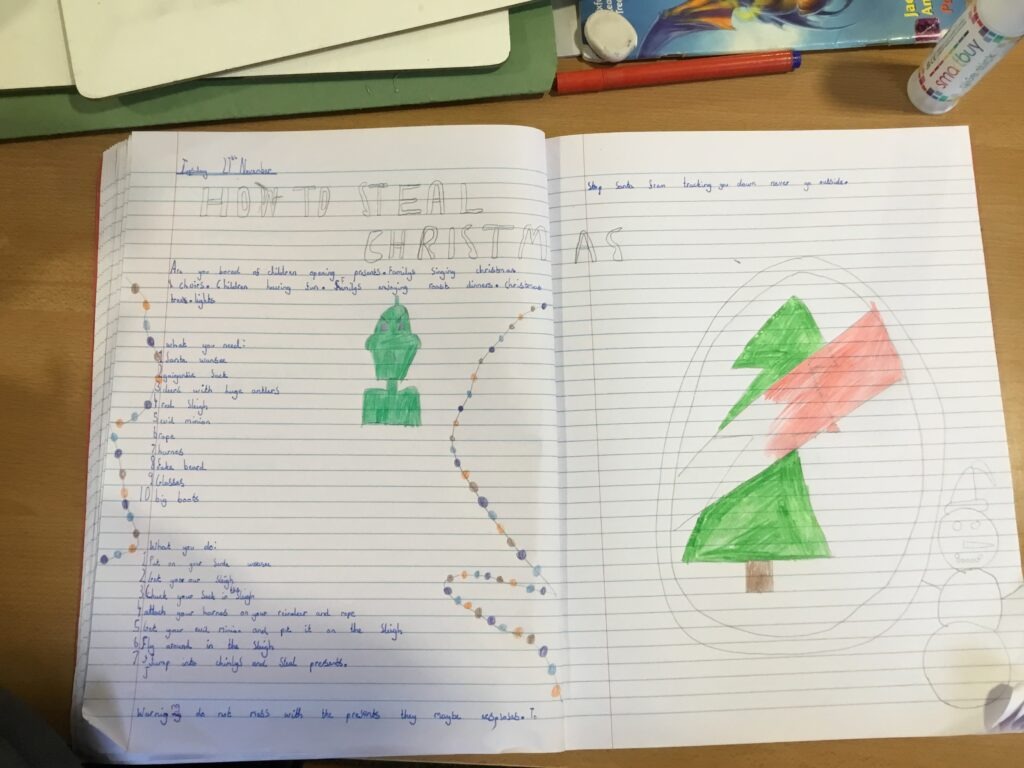 Tuesday 27th November
HOW TO STEAL
CHRISTMAS
Are you bored of children opening presents. Familys singing christmas
choirs. Children having fun. familys enjoying roast dinners. Christmas
trees. lights
what you need:
1 Santa
2 gaigantic Sack
3 deers with huge antlers
4 red Sleigh
5 evil minion
6 rope
7 harnas
8 fake beard
9 Glasses
10 big boots
What you do:
1 Put on your Santa
2 Get your Sleigh
3 Chuck your Sack in the Sleigh
4 attach your harnas on your reindeer and rope
5 Get your evil minion and put it on the Sleigh
6 Fly around in the Sleigh
7 Jump into chimlys and Steal presents.
Warning do not mess with the presents they maybe To
Stop Santa from tracking you down never go outside.
smartbuy